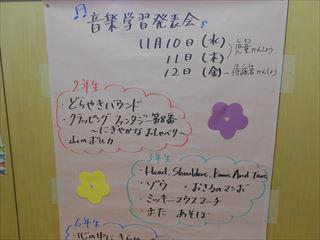 音楽学習発表会
11月10日(水) 児童かんしょう
11日(木)
12日(金)→保護者かんしょう
2年生
・どらやきバウンド
・クラッピング ファンタジー第8番
〜にぎやかな おしゃべり〜
・山のポルカ
3年生
・Head, Shoulders, Knees And Toes
・ゾウ ・おさるのマンボ
・ミッキーマウスマーチ
・また あそぼー
6年生